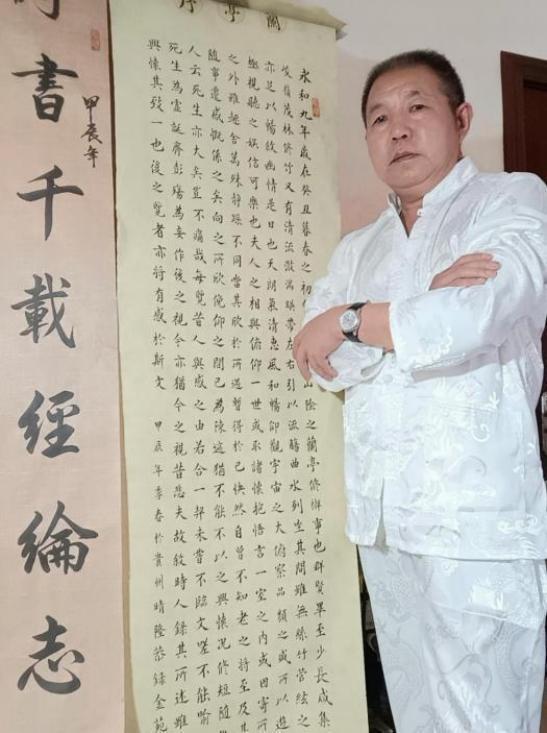 蘭亭序
永和九年歲在癸丑暮春之初
山陰之蘭亭脩禊事也群賢畢至少長咸集
峻嶺茂林脩竹又有清流激湍暎帶左右引以流觴曲水列坐其間雖無絲竹管絃之
亦足以暢敘幽情是日也天朗氣清惠風和暢仰觀宇宙之大俯察品類之盛所以遊
極視聽之娛信可樂也夫人之相與俯仰一世或取諸懷抱悟言一室之內或因寄所
之外雖趣舍萬殊靜躁不同當其欣於所遇暫得於己快然自曾不知老之將至及其
隨事遷感慨係之矣向之所欣俛仰之間已為陳迹猶不能不以之興懷況修短隨
人云死生亦大矣豈不痛哉每覽昔人興感之由若合一契未嘗不臨文嗟不能喻
死生為虛誕齊彭殤為妄作後之視今亦猶今之視昔悲夫故敘時人錄其所述雖
興懷其致一也後之覽者亦將有感於斯文 甲辰年季春於貴州晴隆恭錄金苑
甲辰年
書千載經綸志